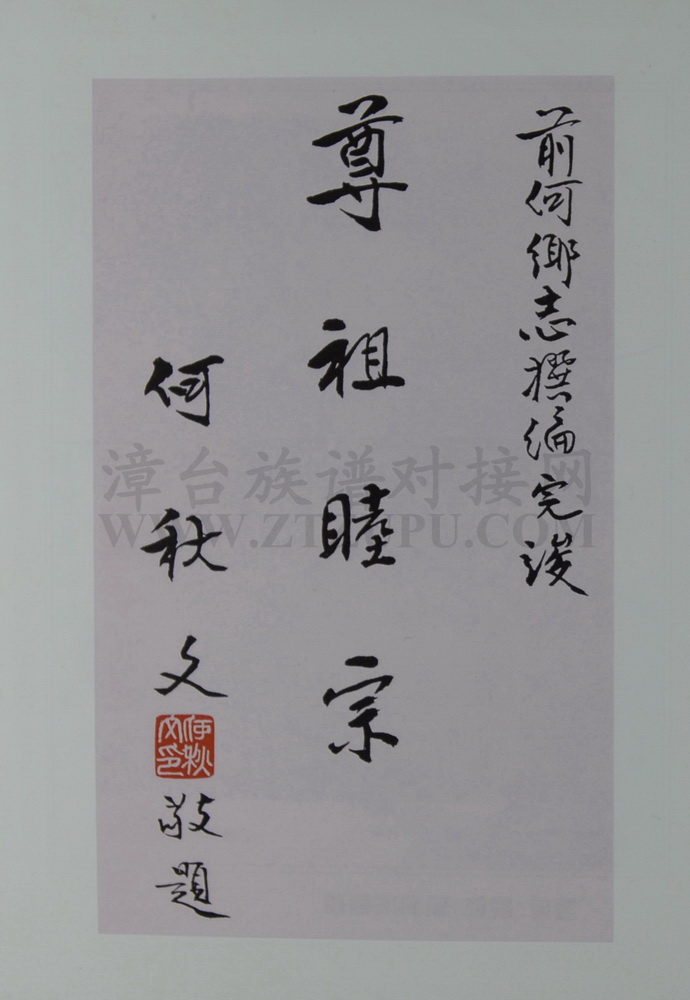 前何鄉志撰编完竣
尊祖睦宗
何秋文敬題
何秋文印
漳台族谱对接网
WWW.ZTZUPU.COM